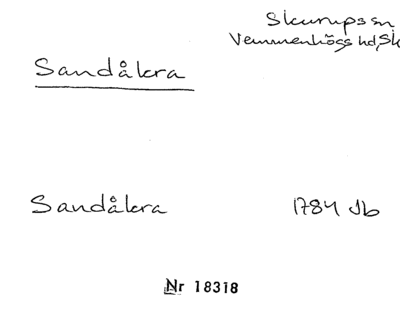 Skurupssn
Vemmenhögs hd, Sk
Sandåkra
Sandåkra 1784 Jb
Nr 18318